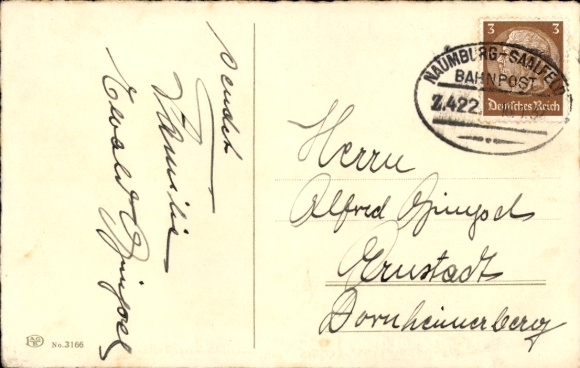 sendet
Familie
Ewald Spingsch
3 3
Deutsches Reich
NAUMBURG-SAALFELD
BAHNPOST
Z.422
Herrn
Alfred
Arnstadt
Dornheimerberg
No. 3166